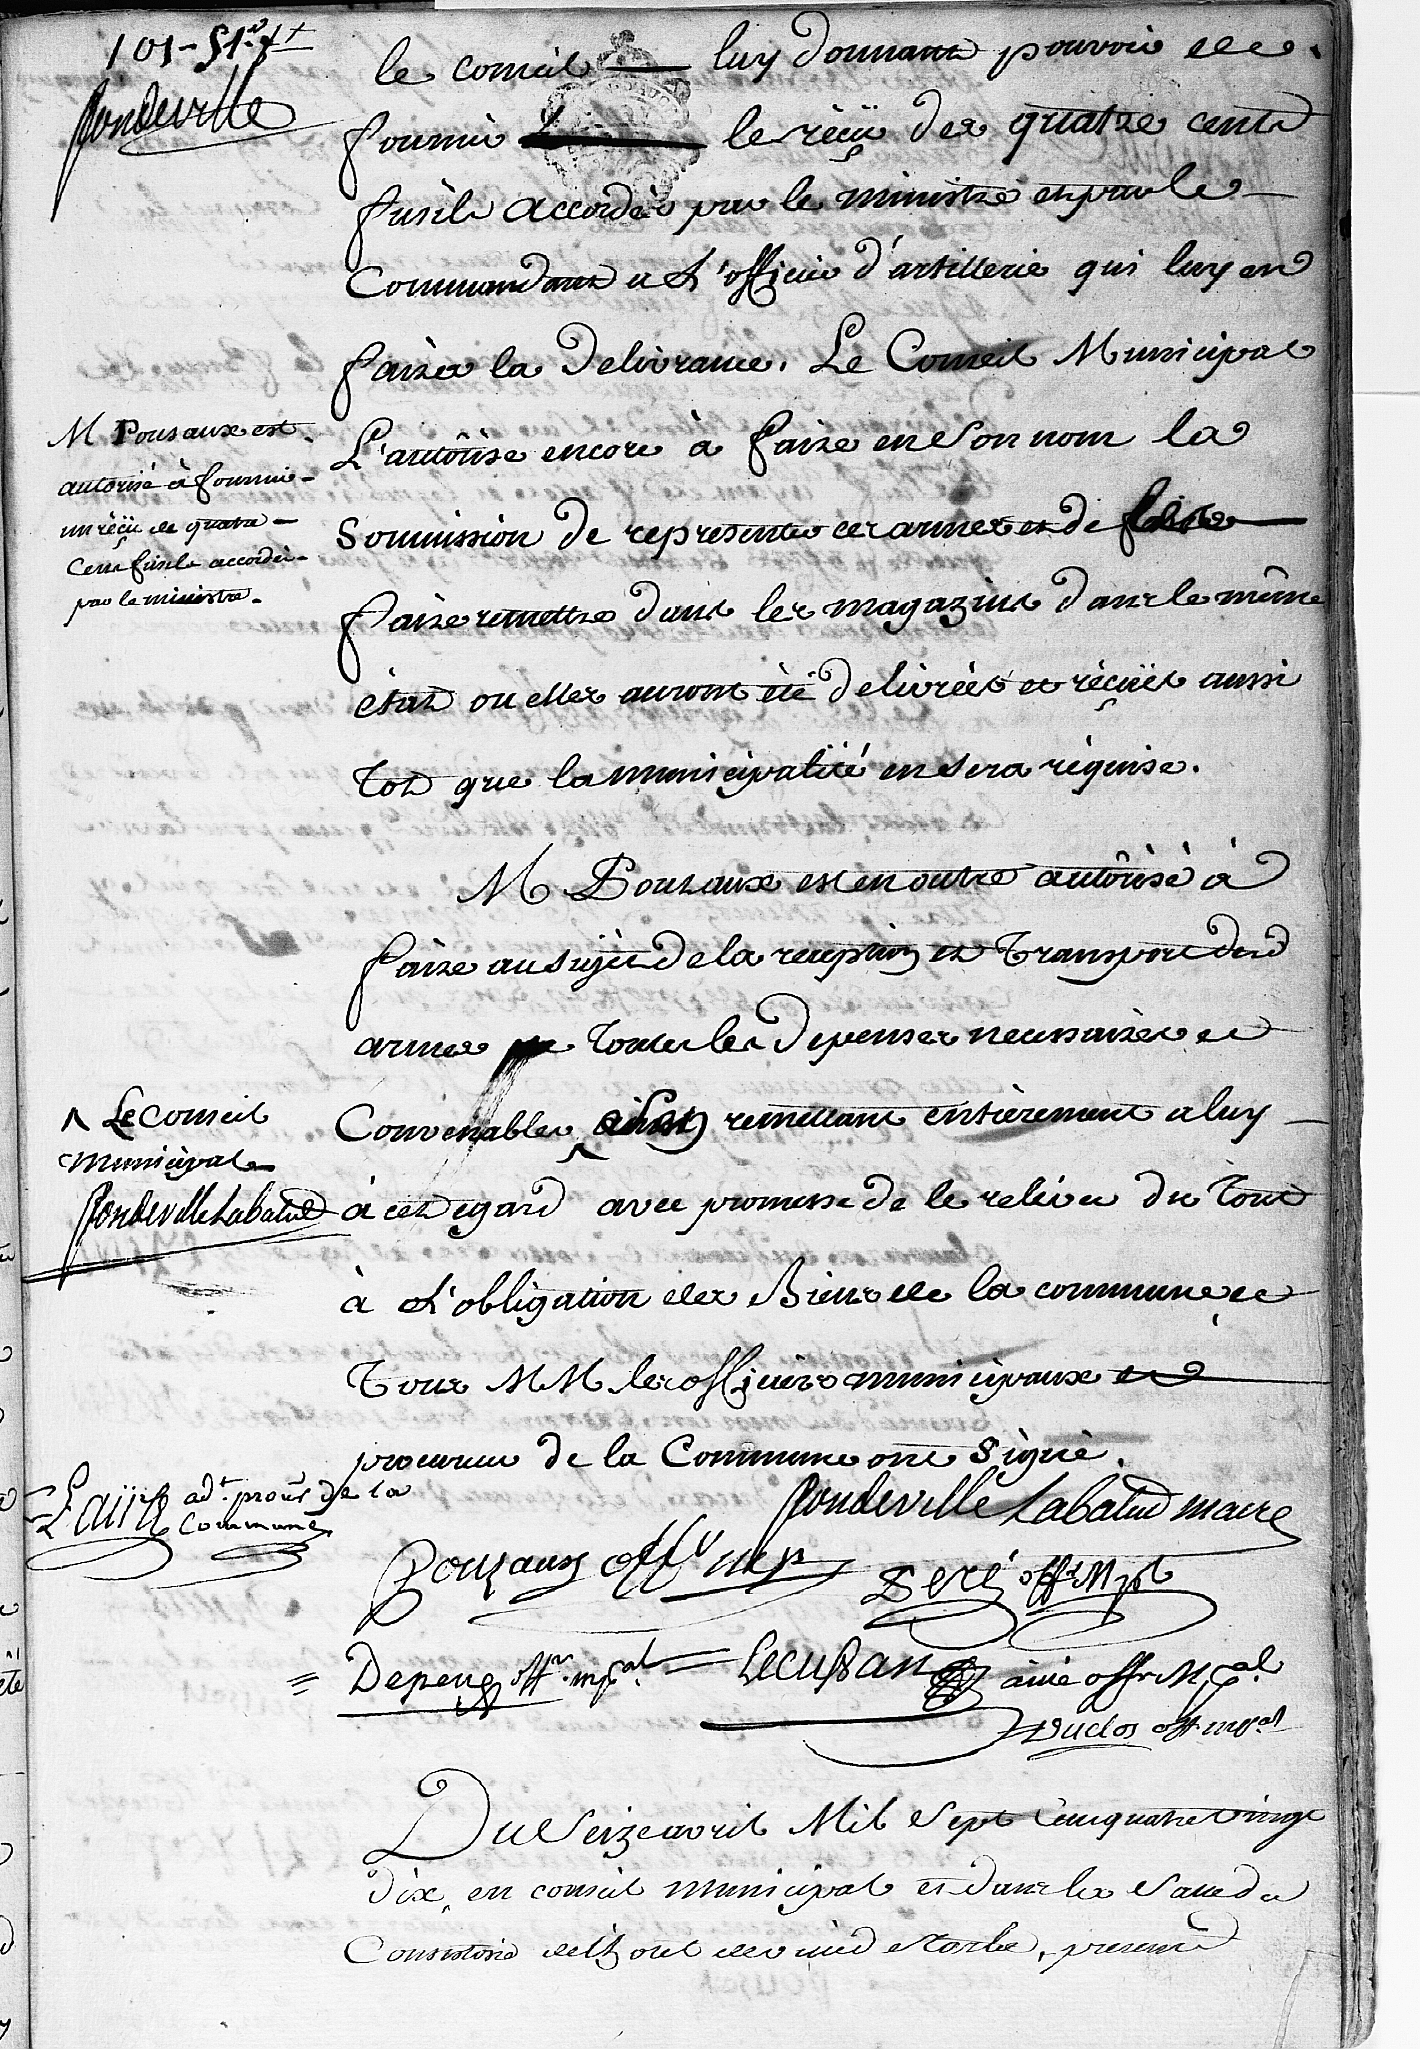 101 - 51
fondeville
le conseil luy donnant pouvoir de
fournir le réçü des quatre cent
fusils accordés par le ministre et par le
Commandant a L'officier d'artillerie qui luy en
faira la delivrance. Le Conseil Municipal
L'autorise encore à faire en Son nom la
Soumission de representer ces armes et de
faire remettre dans les magazins dans le même
état ou elles auront été delivrées et réçües aussi
tot que la municipalité en sera réquise.
M Pousaux est
autorisé à fournir
un réçü de quatre
Cent fusils accordés
par le ministre.
M Pouzaux est en outre autôrisé à
faire au sujet de la reception et transport desd
armes toutes les depenses necessaires et
Convenables remettant entièrement a luy
à cet egard avec promesse de le reliver du tout
à L'obligation des Biens de la commune, et
tous MM les officiers municipaux et
procureur de la Commune ont Signé.
^ Le Conseil
municipal
fondeville Labatut
fondeville Labatut maire
adt. procur de la
Commune
Pouzaux offr mpl
Deré offr Mpl
= Depeng offr. mpal =
Lecussan ainé offr Mpal.
Duclos off mpal
Du Seize avril Mil Sept Cens quatre vingt
dix, en conseil municipal et dans la Salle du
Consistoire de l'hotel de vic d Torbe, presens